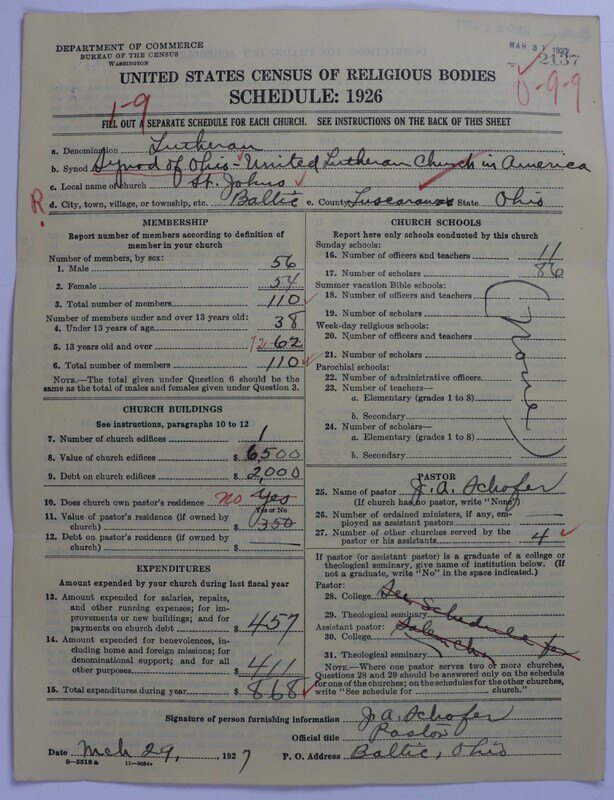 DEPARTMENT OF COMMERCE
BUREAU OF THE CENSUS
WASHINGTON
MAR 31 1927
2137
UNITED STATES CENSUS OF RELIGIOUS BODIES
SCHEDULE: 1926
1-9
0-9-9
FILL OUT A SEPARATE SCHEDULE FOR EACH CHURCH. SEE INSTRUCTIONS ON THE BACK OF THIS SHEET
a. Denomination Lutheran
b. Synod Synod of Ohio - United Lutheran Church in America
c. Local name of church St. Johns
R. d. City, town, village, or township, etc. Baltic e. County Tuscarawas State Ohio
MEMBERSHIP
Report number of members according to definition of
member in your church
Number of members, by sex:
1. Male 56
2. Female 54
3. Total number of members 110
Number of members under and over 13 years old:
4. Under 13 years of age 38
5. 13 years old and over 72 62
6. Total number of members 110
NOTE.—The total given under Question 6 should be
the same as the total of males and females given under Question 3.
CHURCH BUILDINGS
See instructions, paragraphs 10 to 12
7. Number of church edifices 1
8. Value of church edifices $ 6,500
9. Debt on church edifices $ 2,000
10. Does church own pastor's residence no Yes
Yes or No
11. Value of pastor's residence (if owned by
church) $ 350
12. Debt on pastor's residence (if owned by
church) $ —
EXPENDITURES
Amount expended by your church during last fiscal year
13. Amount expended for salaries, repairs,
and other running expenses; for im-
provements or new buildings; and for
payments on church debt $ 457
14. Amount expended for benevolences, in-
cluding home and foreign missions; for
denominational support; and for all
other purposes $ 411
15. Total expenditures during year $ 868
CHURCH SCHOOLS
Report here only schools conducted by this church
Sunday schools:
16. Number of officers and teachers 11
17. Number of scholars 86
Summer vacation Bible schools:
18. Number of officers and teachers
19. Number of scholars
Week-day religious schools:
20. Number of officers and teachers
21. Number of scholars
Parochial schools:
22. Number of administrative officers
23. Number of teachers—
a. Elementary (grades 1 to 8)
b. Secondary
24. Number of scholars—
a. Elementary (grades 1 to 8)
b. Secondary
(None)
PASTOR
25. Name of pastor J. A. Schofer
(If church has no pastor, write "None")
26. Number of ordained ministers, if any, em-
ployed as assistant pastors —
27. Number of other churches served by the
pastor or his assistants 4
If pastor (or assistant pastor) is a graduate of a college or
theological seminary, give name of institution below. (If
not a graduate, write "No" in the space indicated.)
Pastor:
28. College See Schedule for
29. Theological seminary
Assistant pastor:
30. College
31. Theological seminary
NOTE.—Where one pastor serves two or more churches,
Questions 28 and 29 should be answered only on the schedule
for one of the churches; on the schedules for the other churches,
write "See schedule for church."
Signature of person furnishing information J. A. Schofer
Official title Pastor
Date Mch 29, 1927 P. O. Address Baltic, Ohio